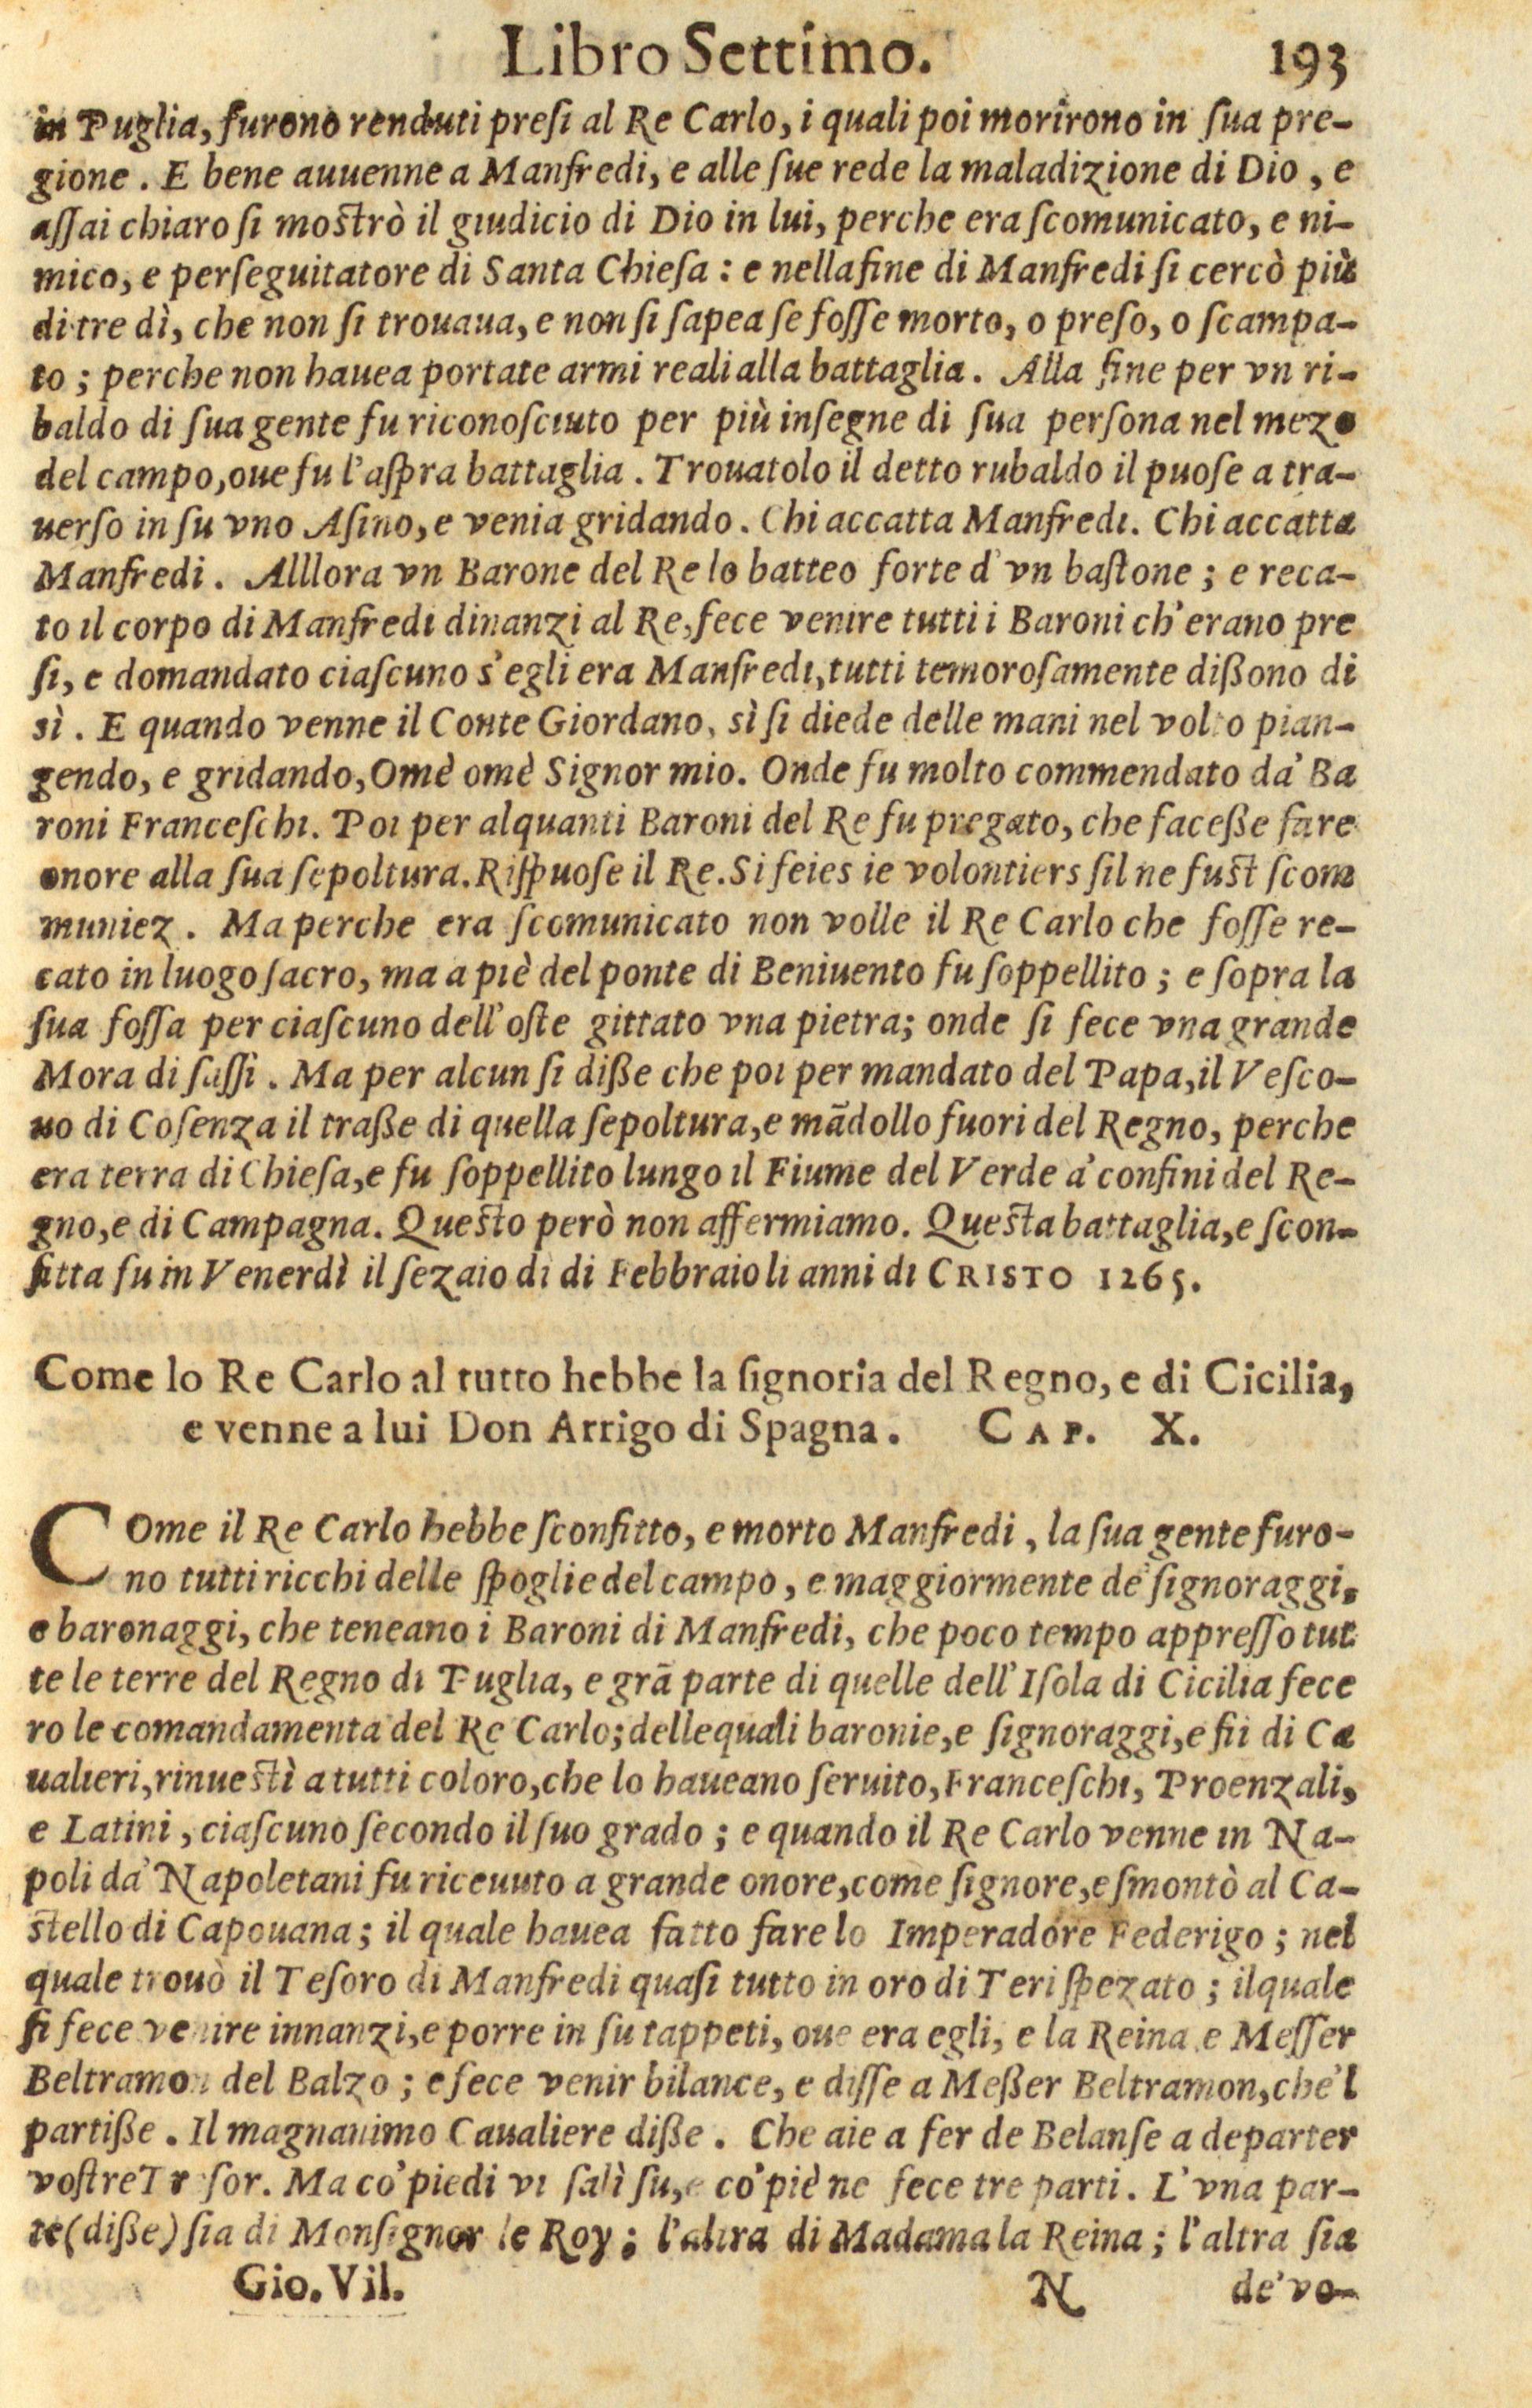 Libro Settimo. 193
in Puglia, furono renduti preſi al Re Carlo, i quali poi morirono in ſua pre-
gione. E bene auuenne a Manfredi, e alle ſue rede la maladizione di Dio, e
aſſai chiaro ſi moſtrò il giudicio di Dio in lui, perche era ſcomunicato, e ni-
mico, e perſeguitatore di Santa Chieſa: e nella fine di Manfredi ſi cercò più
di tre dì, che non ſi trouaua, e non ſi ſapea ſe foſſe morto, o preſo, o ſcampa-
to; perche non hauea portate armi reali alla battaglia. Alla fine per vn ri-
baldo di ſua gente fu riconoſciuto per più inſegne di ſua perſona nel mezo
del campo, oue fu l'aſpra battaglia. Trouatolo il detto rubaldo il puoſe a tra-
uerſo in ſu vno Aſino, e venia gridando. Chi accatta Manfredi. Chi accatta
Manfredi. Alllora vn Barone del Re lo batteo forte d'vn baſtone; e reca-
to il corpo di Manfredi dinanzi al Re, fece venire tutti i Baroni ch'erano pre
ſi, e domandato ciaſcuno s'egli era Manfredi, tutti temoroſamente dißono di
sì. E quando venne il Conte Giordano, sì ſi diede delle mani nel volto pian-
gendo, e gridando, Omè omè Signor mio. Onde fu molto commendato da' Ba
roni Franceſchi. Poi per alquanti Baroni del Re fu pregato, che faceße fare
onore alla ſua ſepoltura. Riſpuoſe il Re. Si feies ie volontiers ſil ne fuſt ſcom
muniez. Ma perche era ſcomunicato non volle il Re Carlo che foſſe re-
cato in luogo ſacro, ma a piè del ponte di Beniuento fu ſoppellito; e ſopra la
ſua foſſa per ciaſcuno dell'oſte gittato vna pietra; onde ſi fece vna grande
Mora di ſaſſi. Ma per alcun ſi diße che poi per mandato del Papa, il Veſco-
uo di Coſenza il traße di quella ſepoltura, e mādollo fuori del Regno, perche
era terra di Chieſa, e fu ſoppellito lungo il Fiume del Verde a' confini del Re-
gno, e di Campagna. Queſto però non affermiamo. Queſta battaglia, e ſcon-
fitta fu in Venerdì il ſezaio dì di Febbraio li anni di CRISTO 1265.
Come lo Re Carlo al tutto hebbe la ſignoria del Regno, e di Cicilia,
e venne a lui Don Arrigo di Spagna. CAP. X.
COme il Re Carlo hebbe ſconfitto, e morto Manfredi, la ſua gente furo-
no tutti ricchi delle ſpoglie del campo, e maggiormente de' ſignoraggi,
e baronaggi, che teneano i Baroni di Manfredi, che poco tempo appreſſo tut
te le terre del Regno di Puglia, e grā parte di quelle dell'Iſola di Cicilia fece
ro le comandamenta del Re Carlo; delle quali baronie, e ſignoraggi, e fii di Ca
ualieri, rinueſtì a tutti coloro, che lo haueano ſeruito, Franceſchi, Proenzali,
e Latini, ciaſcuno ſecondo il ſuo grado; e quando il Re Carlo venne in Na-
poli da' Napoletani fu riceuuto a grande onore, come ſignore, e ſmontò al Ca-
ſtello di Capouana; il quale hauea fatto fare lo Imperadore Federigo; nel
quale trouò il Teſoro di Manfredi quaſi tutto in oro di Teri ſpezato; il quale
ſi fece venire innanzi, e porre in ſu tappeti, oue era egli, e la Reina e Meſſer
Beltramon del Balzo; e fece venir bilance, e diſſe a Meßer Beltramon, che'l
partiße. Il magnanimo Caualiere diße. Che aie a fer de Belanſe a departer
voſtre Treſor. Ma co' piedi vi ſalì ſu, e co' piè ne fece tre parti. L'vna par-
te (diße) ſia di Monſignor le Roy; l'altra di Madama la Reina; l'altra ſia
Gio. Vil. N de' vo-